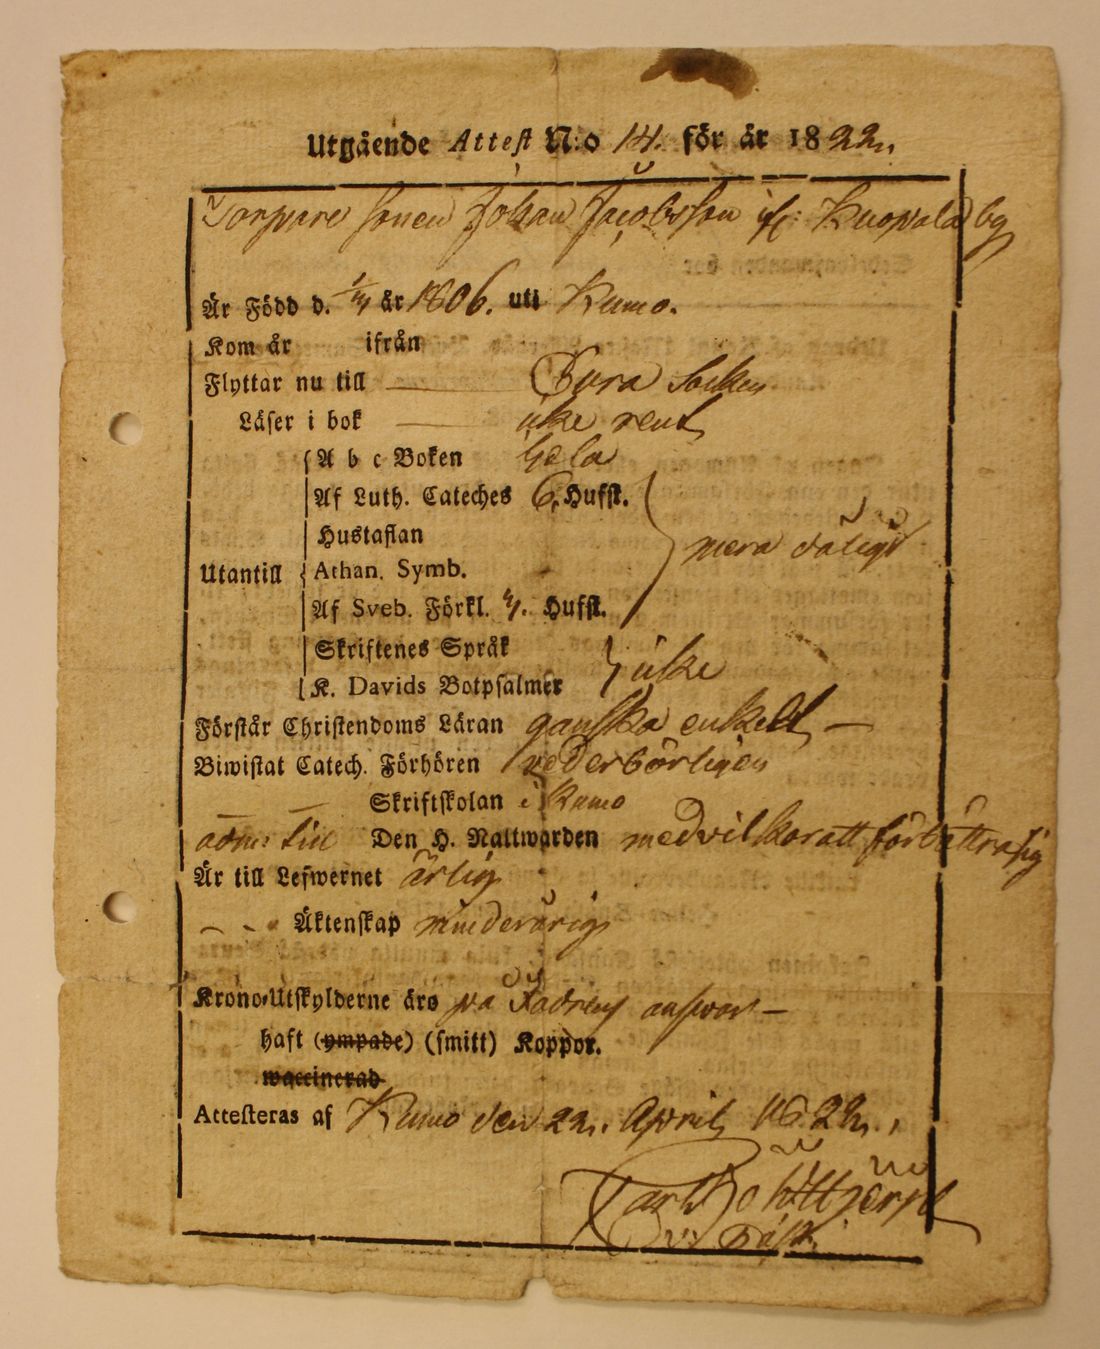 Utgående Attest N:o 14. för år 1822.
Torpare sonen Johan Jacobsson if: Kuopala by
Är Född d. år 1806. uti Kumo.
Kom år ifrån
Flyttar nu till Eura Socken
Läser i bok icke rent
A b c Boken hela
Af Luth. Cateches 6. Hufst.
Hustaflan
mera dåligt
Utantill
Athan. Symb.
Af Sveb. Förkl. Hufst.
Skriftenes Språk
icke
K. Davids Botpsalmer
Förstår Christendoms Läran ganska enkelt —
Biwistat Catech. Förhören vederbörligen
Skriftskolan i Kumo
adm: till Den H. Nattwarden med vilkor att förbättra sig
Är till Lefwernet ärlig
Äktenskap minderårig
Krono-Utskylderne äro på Fadrens answar —
haft (ympade) (smitt) Koppor.
waccinerad
Attesteras af Kumo den 22. April 1822.
Carl